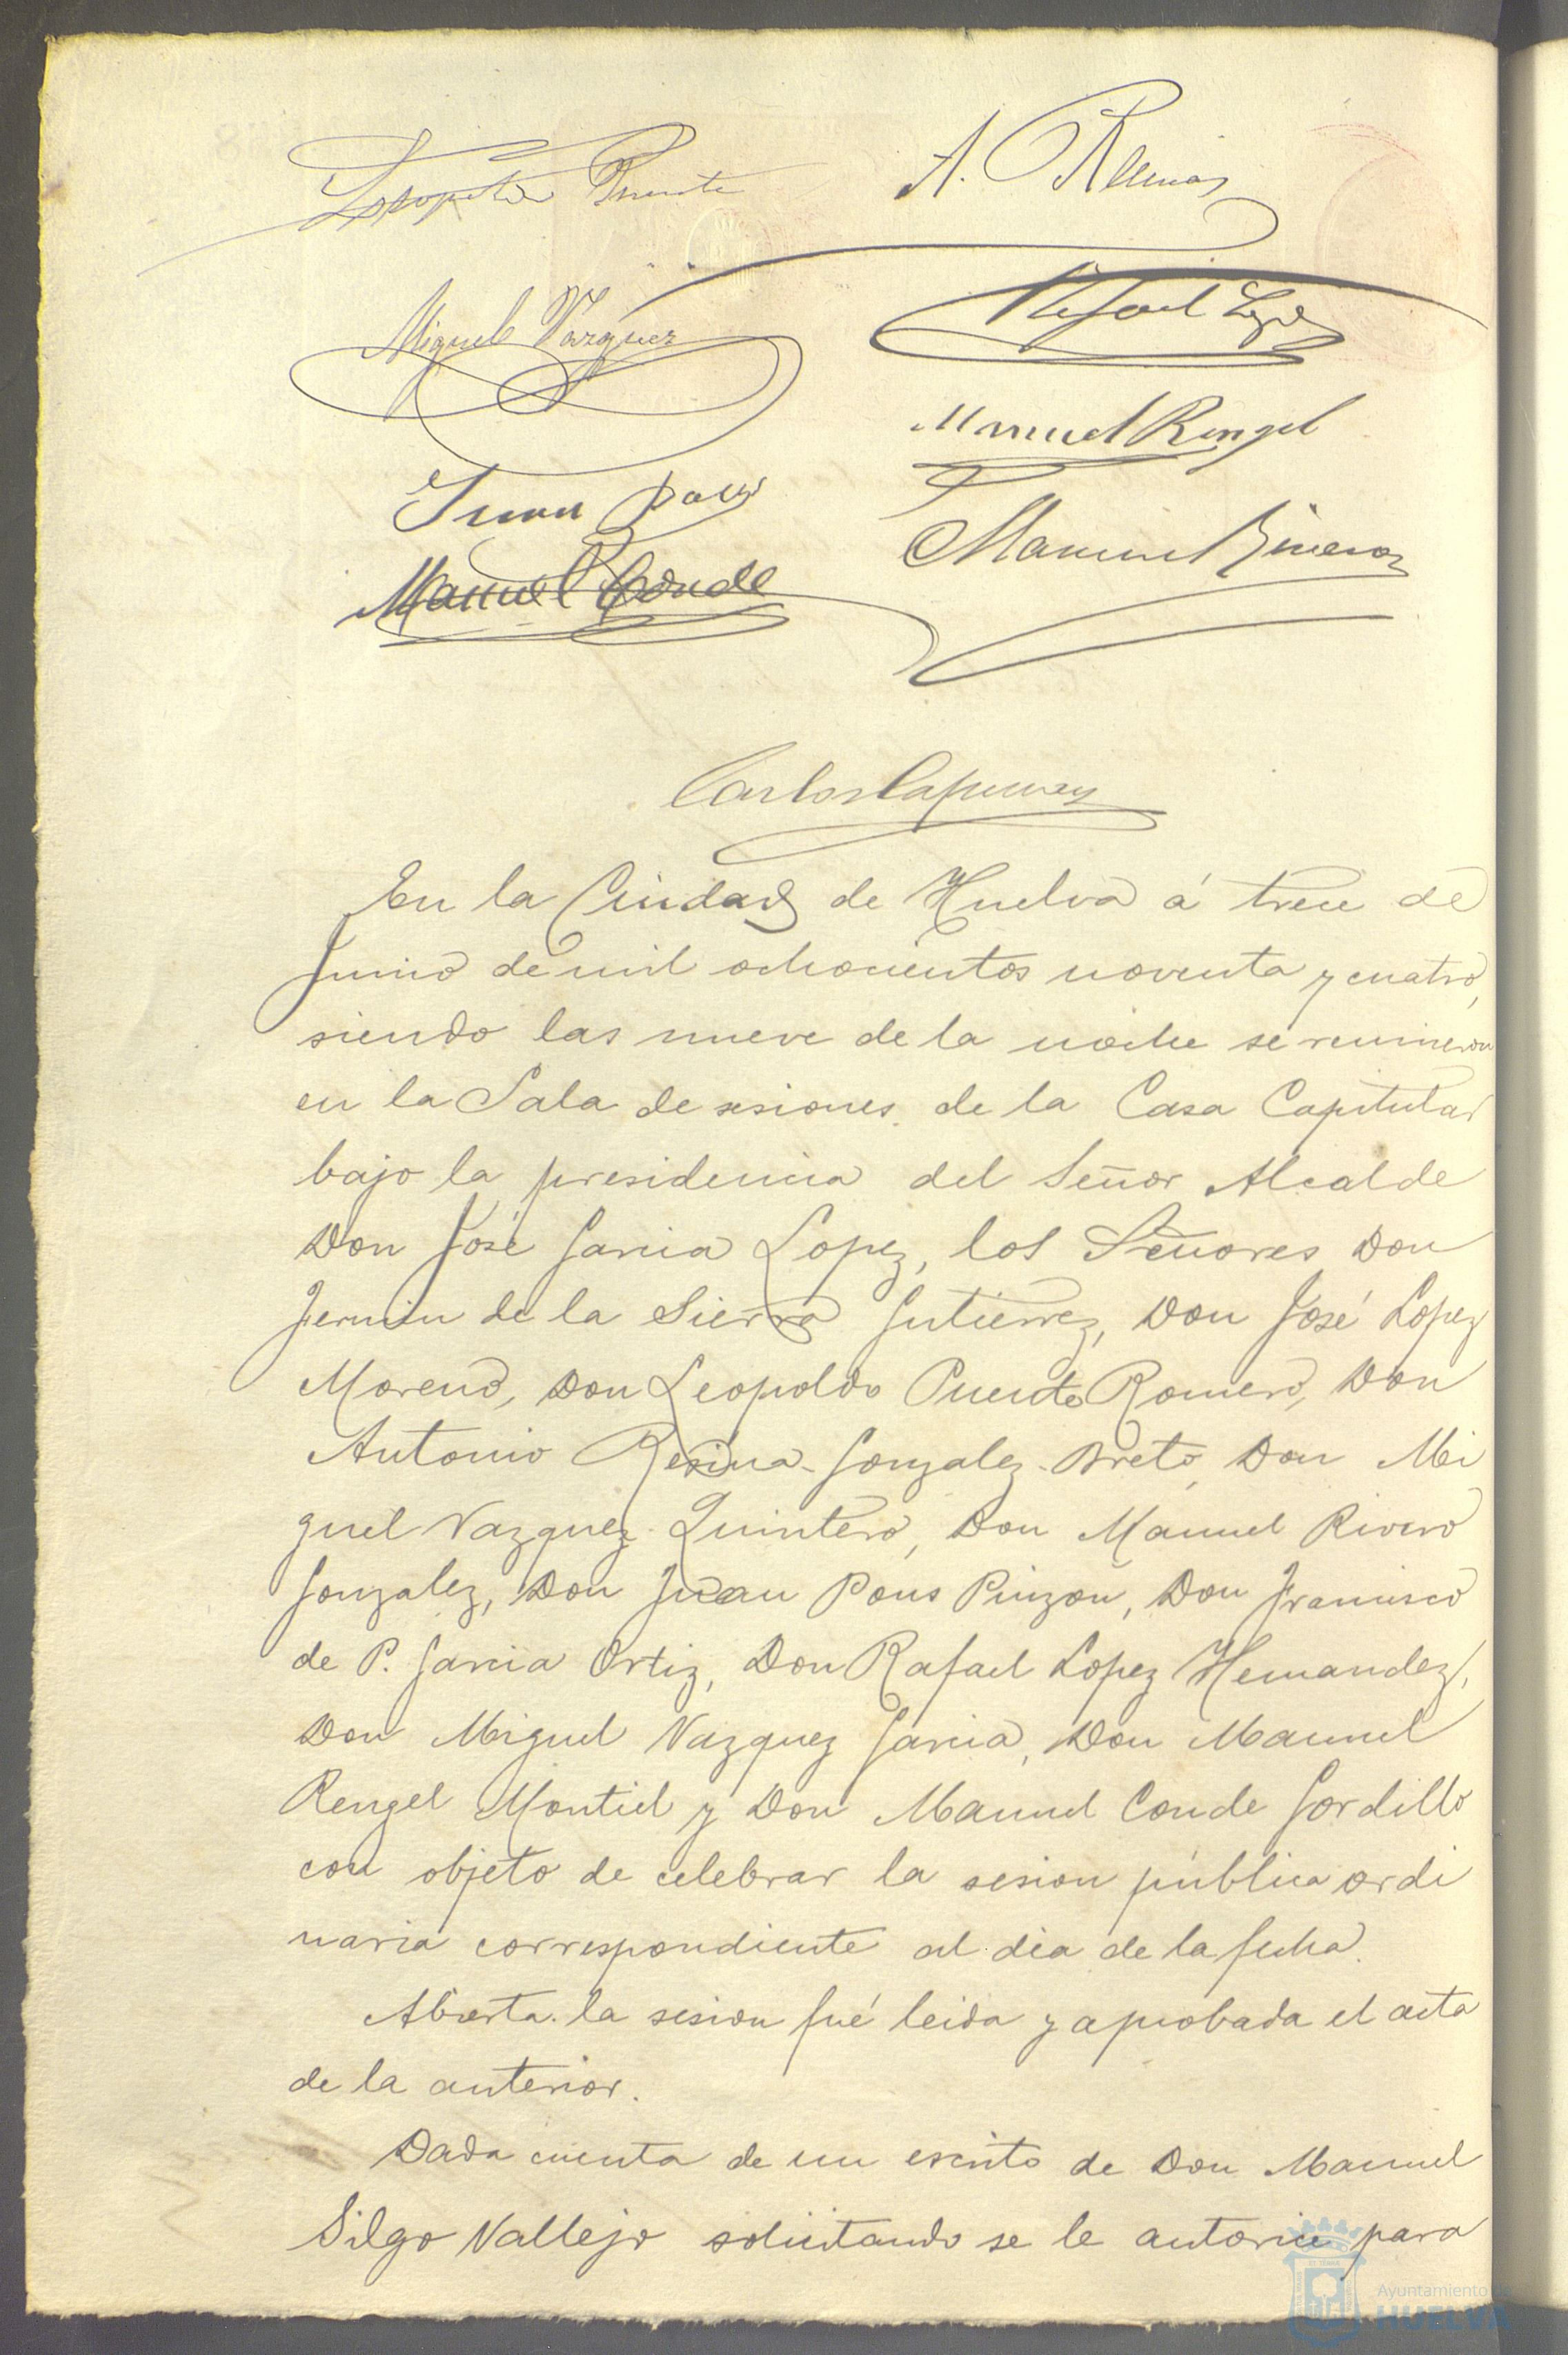 Leopoldo Puente
A. Resina
Miguel Vazquez
Rafael Lopez
Manuel Rengel
Juan Pons
Manuel Rivero
Manuel Conde
Carlos
En la Ciudad de Huelva á trece de
Junio de mil ochocientos noventa y cuatro,
siendo las nueve de la noche se reunieron
en la Sala de sesiones de la Casa Capitular
bajo la presidencia del Señor Alcalde
Don José Garcia Lopez, los Señores Don
Fermin de la Sierra Gutierrez, Don José Lopez
Moreno, Don Leopoldo Puente Romero, Don
Antonio Resina Gonzalez Breto, Don Mi
guel Vazquez Quintero, Don Manuel Rivero
Gonzalez, Don Juan Pons Pinzon, Don Francisco
de P. Garcia Ortiz, Don Rafael Lopez Hernandez,
Don Miguel Vazquez Garcia, Don Manuel
Rengel Montiel y Don Manuel Conde Gordillo
con objeto de celebrar la sesion pública ordi
naria correspondiente al dia de la fecha.
Abierta la sesion fué leida y aprobada el acta
de la anterior.
Dada cuenta de un escrito de Don Manuel
Silgo Vallejo solicitando se le autorice para
Ayuntamiento de
HUELVA